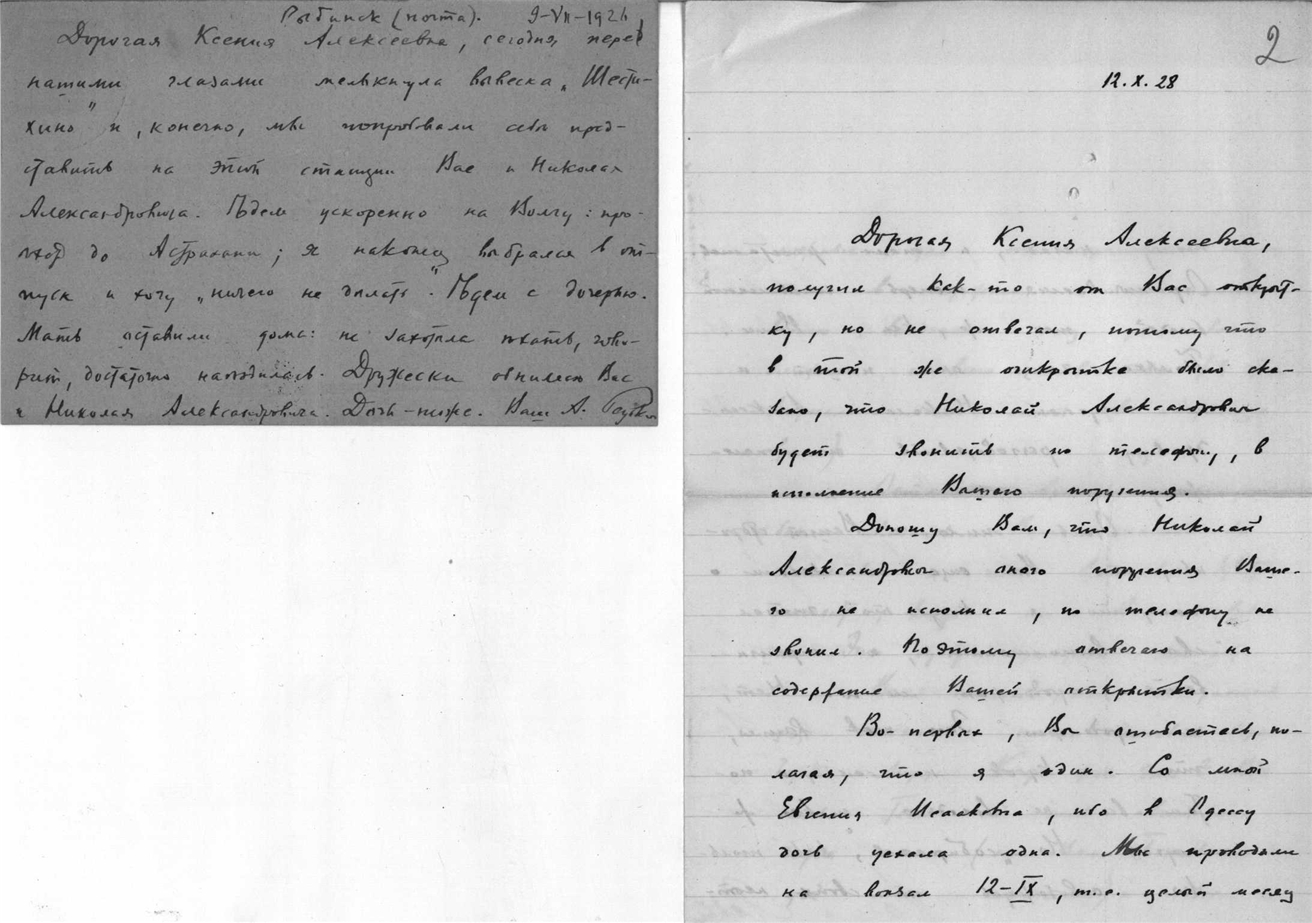 Рыбинск (почта). 9-VII-1926
Дорогая Ксения Алексеевна, сегодня перед
нашими глазами мелькнула вывеска „Шести-
хино" и, конечно, мы попробовали себе пред-
ставить на этой станции Вас и Николая
Александровича. Едем ускоренно на Волгу: про-
езд до Астрахани; я наконец выбрался в от-
пуск и хочу „ничего не делать". Едем с дочерью.
Мать оставили дома: не захотела ехать, гово-
рит, достаточно наездилась. Дружески обнимаю Вас
и Николая Александровича. Дочь - тоже. Ваш А.
2
12.X.28
Дорогая Ксения Алексеевна,
получил как-то от Вас открыт-
ку, но не отвечал, потому что
в той же открытке было ска-
зано, что Николай Александрович
будет звонить по телефону, в
исполнение Вашего поручения.
Доношу Вам, что Николай
Александрович оного поручения Ваше-
го не исполнил, по телефону не
звонил. Поэтому отвечаю на
содержание Вашей открытки.
Во-первых, Вы ошибаетесь, по-
лагая, что я один. Со мной
Евгения Исааковна, ибо в Одессу
дочь уехала одна. Мы проводили
на вокзал 12-IX, т.е. целый месяц